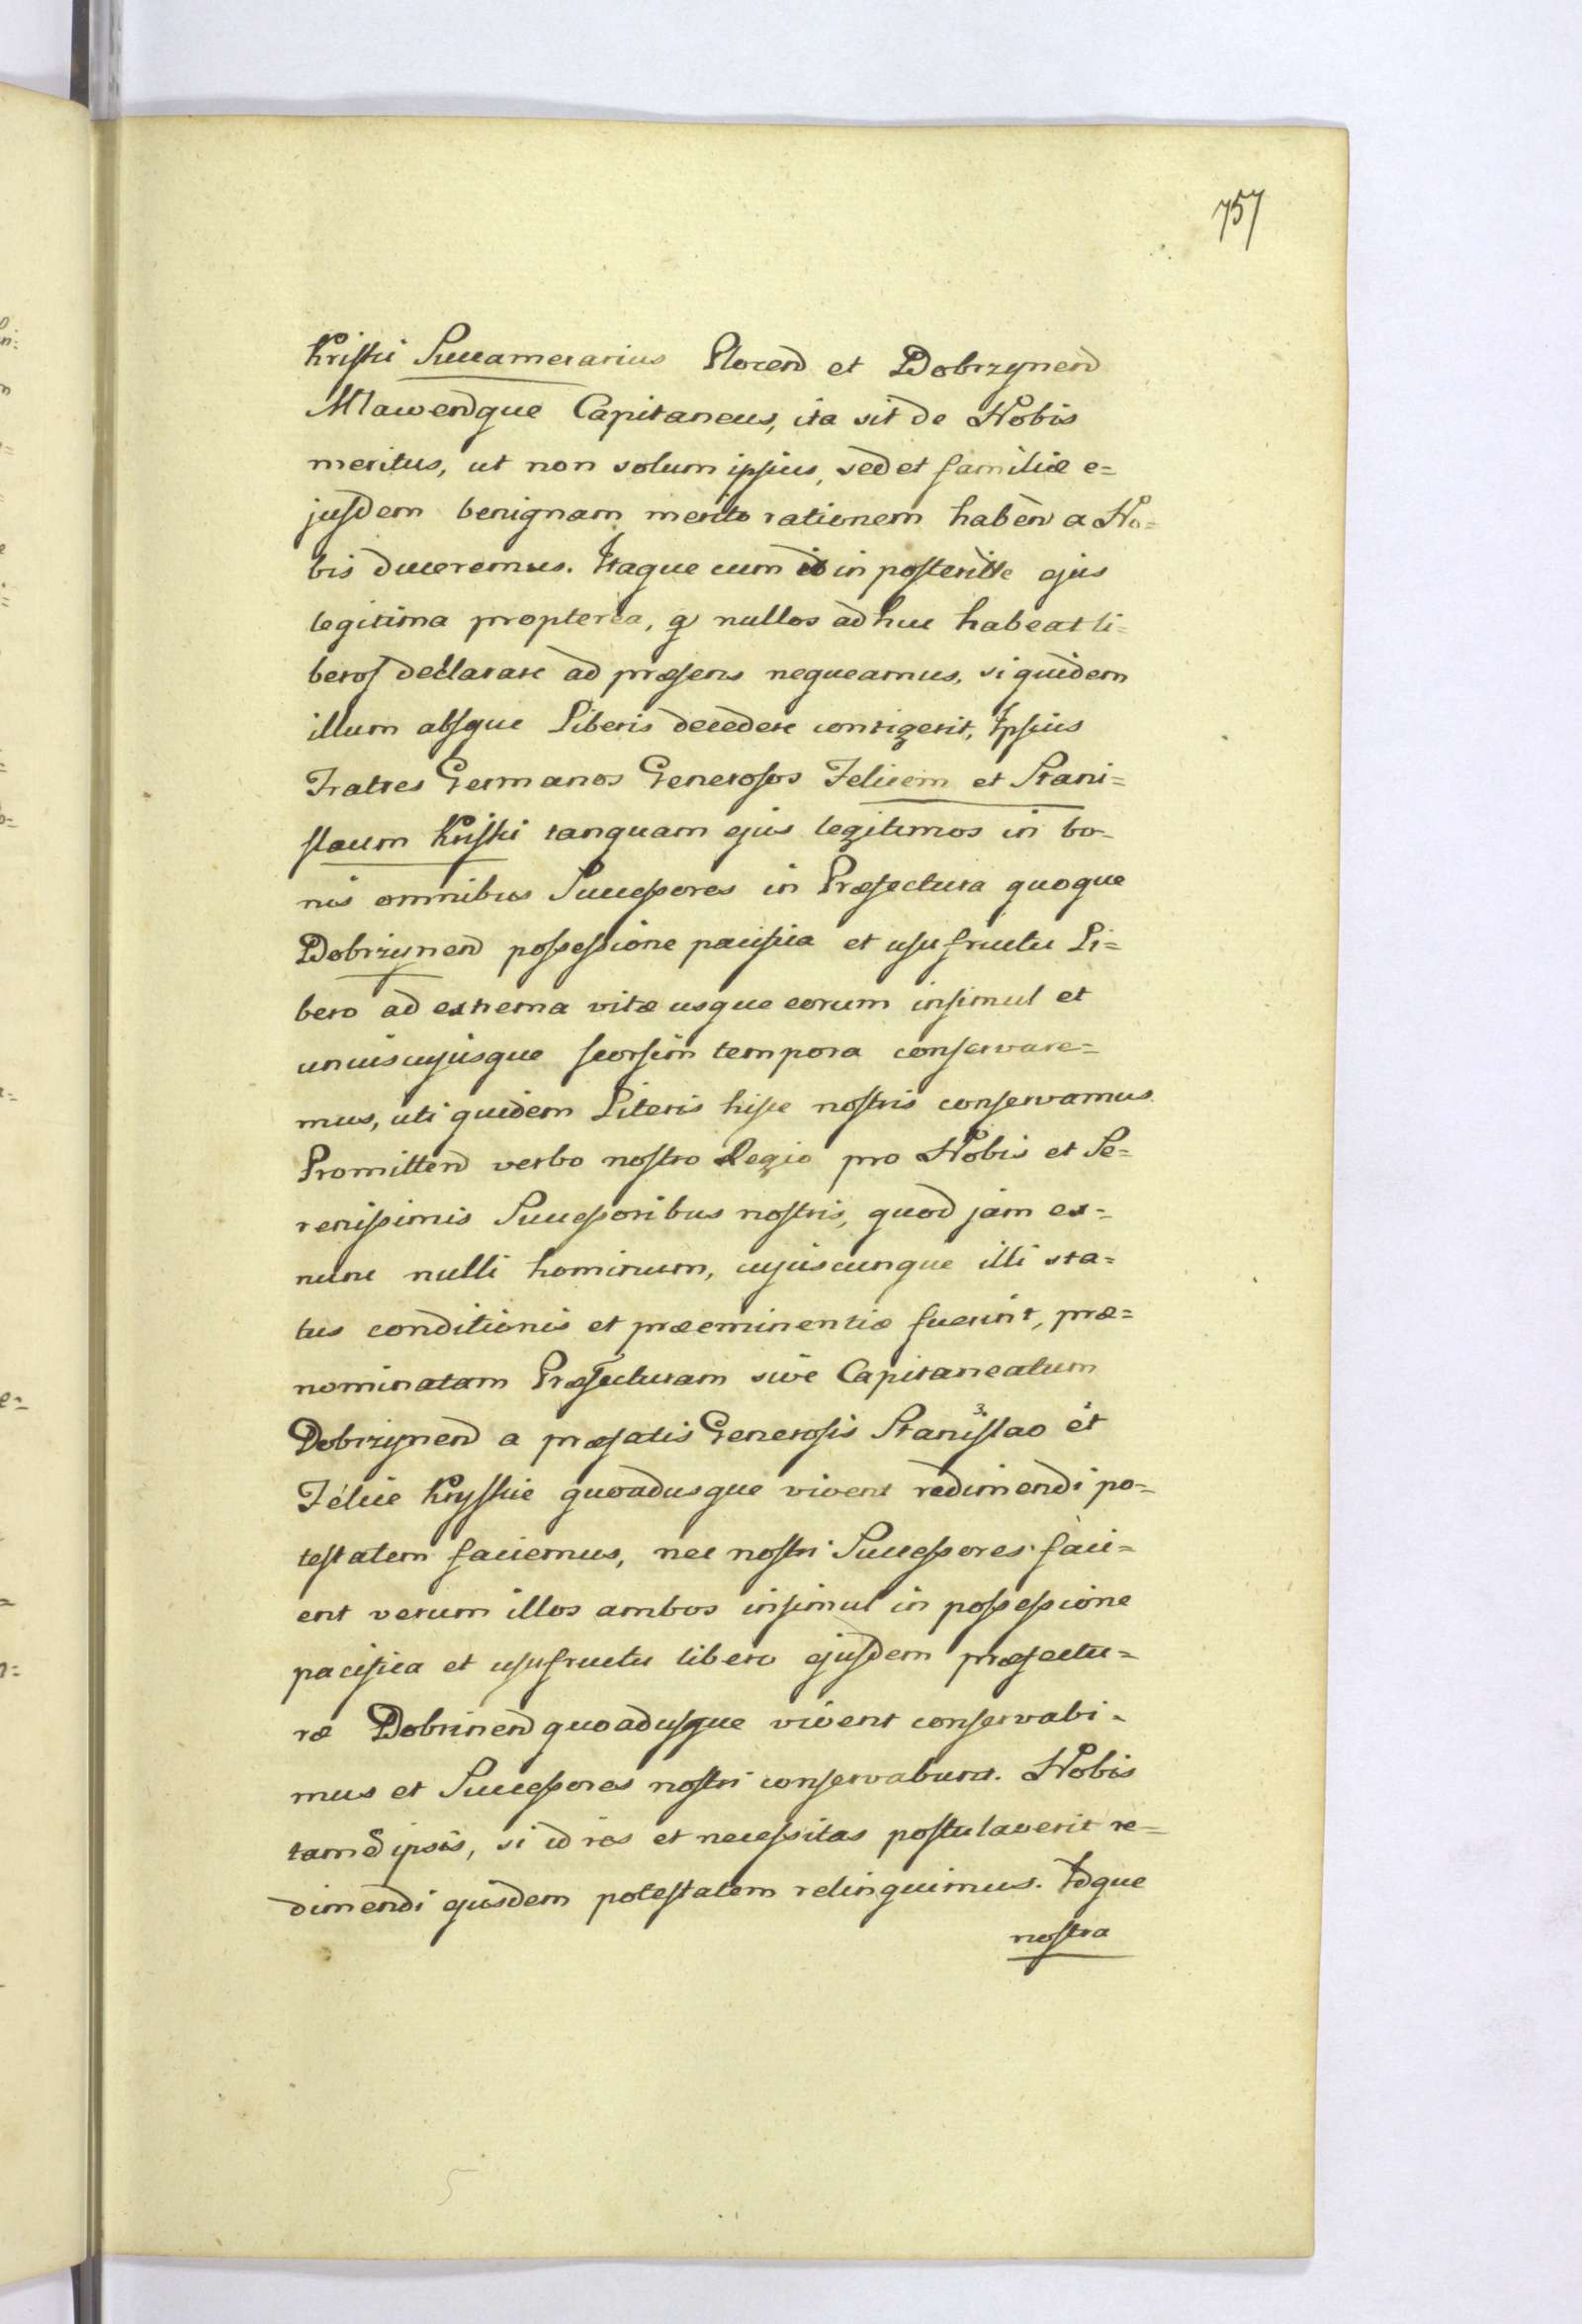 757
Kriski Succamerarius Plocen et Dobrzynen
Mlawenque Capitaneus, ita sit de Nobis
meritus, ut non solum ipsius, sed et familiæ e=
jusdem benignam merito rationem haben a No=
bis duceremus. Itaque cum id in posteritte ejus
legitima propterea, q nullos adhuc habeat li=
beros declarare ad præsens nequeamus, siquidem
illum absque Liberis decedere contigerit, Ipsius
Fratres Germanos Generosos Felicem et Stani=
slaum Kriski tanquam ejus legitimos in bo-
nis omnibus Successores in Præfectura quoque
Dobrzynen possessione pacifica et usufructu Li=
bero ad extrema vitæ usque eorum insimul et
uniuscujusque seorsim tempora conservare=
mus, uti quidem Literis hisce nostris conservamus.
Promitten verbo nostro Regio pro Nobis et Se=
renissimis Successoribus nostris, quod jam ex=
nunc nulli hominum, cujuscunque illi sta=
tus conditionis et præeminentiæ fuerint, præ=
nominatam Præfecturam sive Capitaneatum
Dobrzynen a præfatis Generosis Stanislao et
Felice Kryskie quoadusque vivent redimendi po=
testatem faciemus, nec nostri Successores faci=
ent verum illos ambos insimul in possessione
pacifica et usufructu libero ejusdem præfectu=
ræ Dobrinen quoadusque vivent conservabi=
mus et Successores nostri conservabunt. Nobis
tamē ipsis, si id res et necessitas postulaverit re=
dimendi ejusdem potestatem relinquimus. Idque
nostra